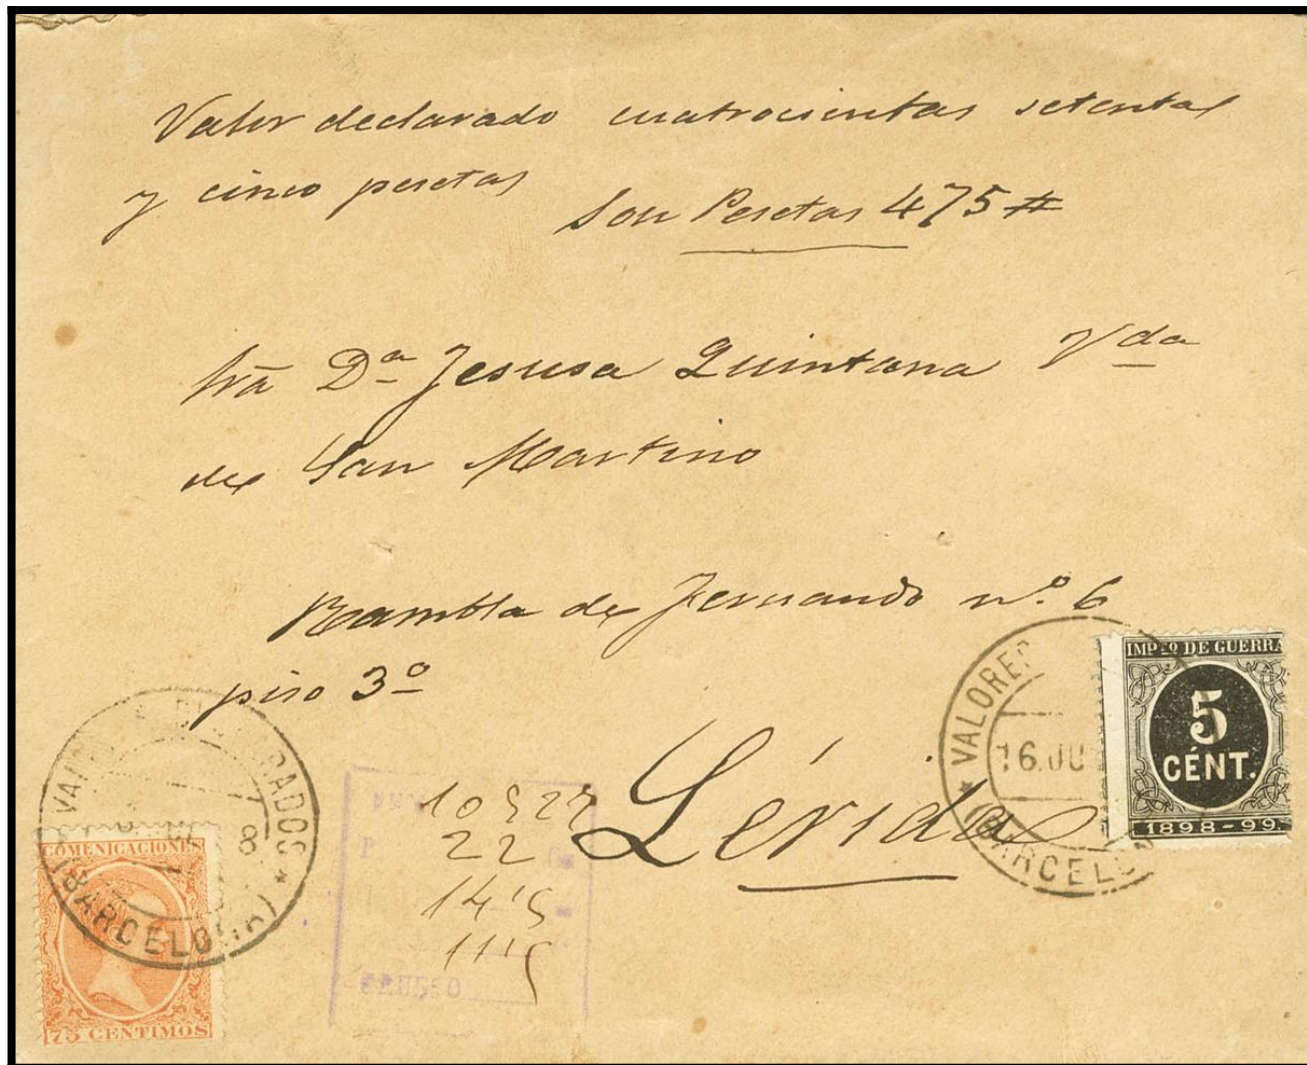 Valor declarado cuatrocientas setenta
y cinco pesetas
Son Pesetas 475 #
Sra Dª Jesusa Quintana Vda
de San Martino
Rambla de Fernando nº 6
piso 3º
Lérida
VALORES
16.JU
(BARCELO
IMPTO DE GUERRA
5
CÉNT.
1898-99
8
(BARCELONA)
COMUNICACIONES
75 CENTIMOS
22
14'5
11'5
GRUESO